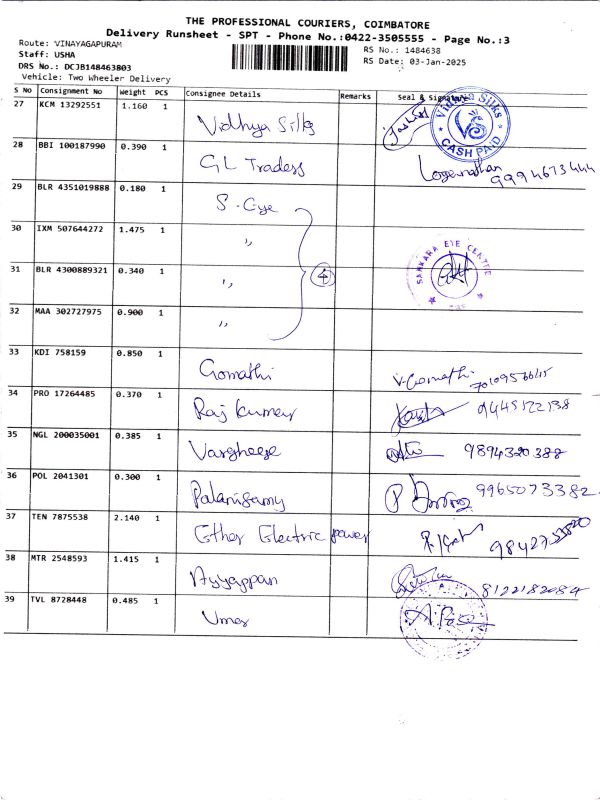 THE PROFESSIONAL COURIERS, COIMBATORE
Delivery Runsheet - SPT - Phone No.:0422-3505555 - Page No.:3
Route: VINAYAGAPURAM
Staff: USHA
DRS No.: DCJB148463803
Vehicle: Two Wheeler Delivery
RS No.: 1484638
RS Date: 03-Jan-2025
S No Consignment No Weight PCS Consignee Details Remarks Seal & Signature
27 KCM 13292551 1.160 1 Vidhya Silks
Vidhya Silks
CASH PAID
28 BBI 100187990 0.390 1 GL Traders Loganathan 9994673444
29 BLR 4351019888 0.180 1 S-Eye
30 IXM 507644272 1.475 1 ,,
31 BLR 4300889321 0.340 1 ,, 4
SANKARA EYE CENTRE
32 MAA 302727975 0.900 1 ,,
33 KDI 758159 0.850 1 Gomathi V. Gomathi
34 PRO 17264485 0.370 1 Raj kumar 9445122138
35 NGL 200035001 0.385 1 Vargheese 9894320388
36 POL 2041301 0.300 1 Palanisamy P 9965073382
37 TEN 7875538 2.140 1 Ether Electric power
38 MTR 2548593 1.415 1 Ayyappan 8122182084
39 TVL 8728448 0.485 1 Umar